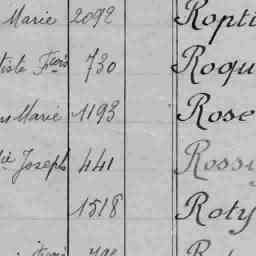 Marie 2092 Ropti
tiste Fçois 730 Roqu
Marie 1193 Rose
Joseph 441 Ross
1518 Roty